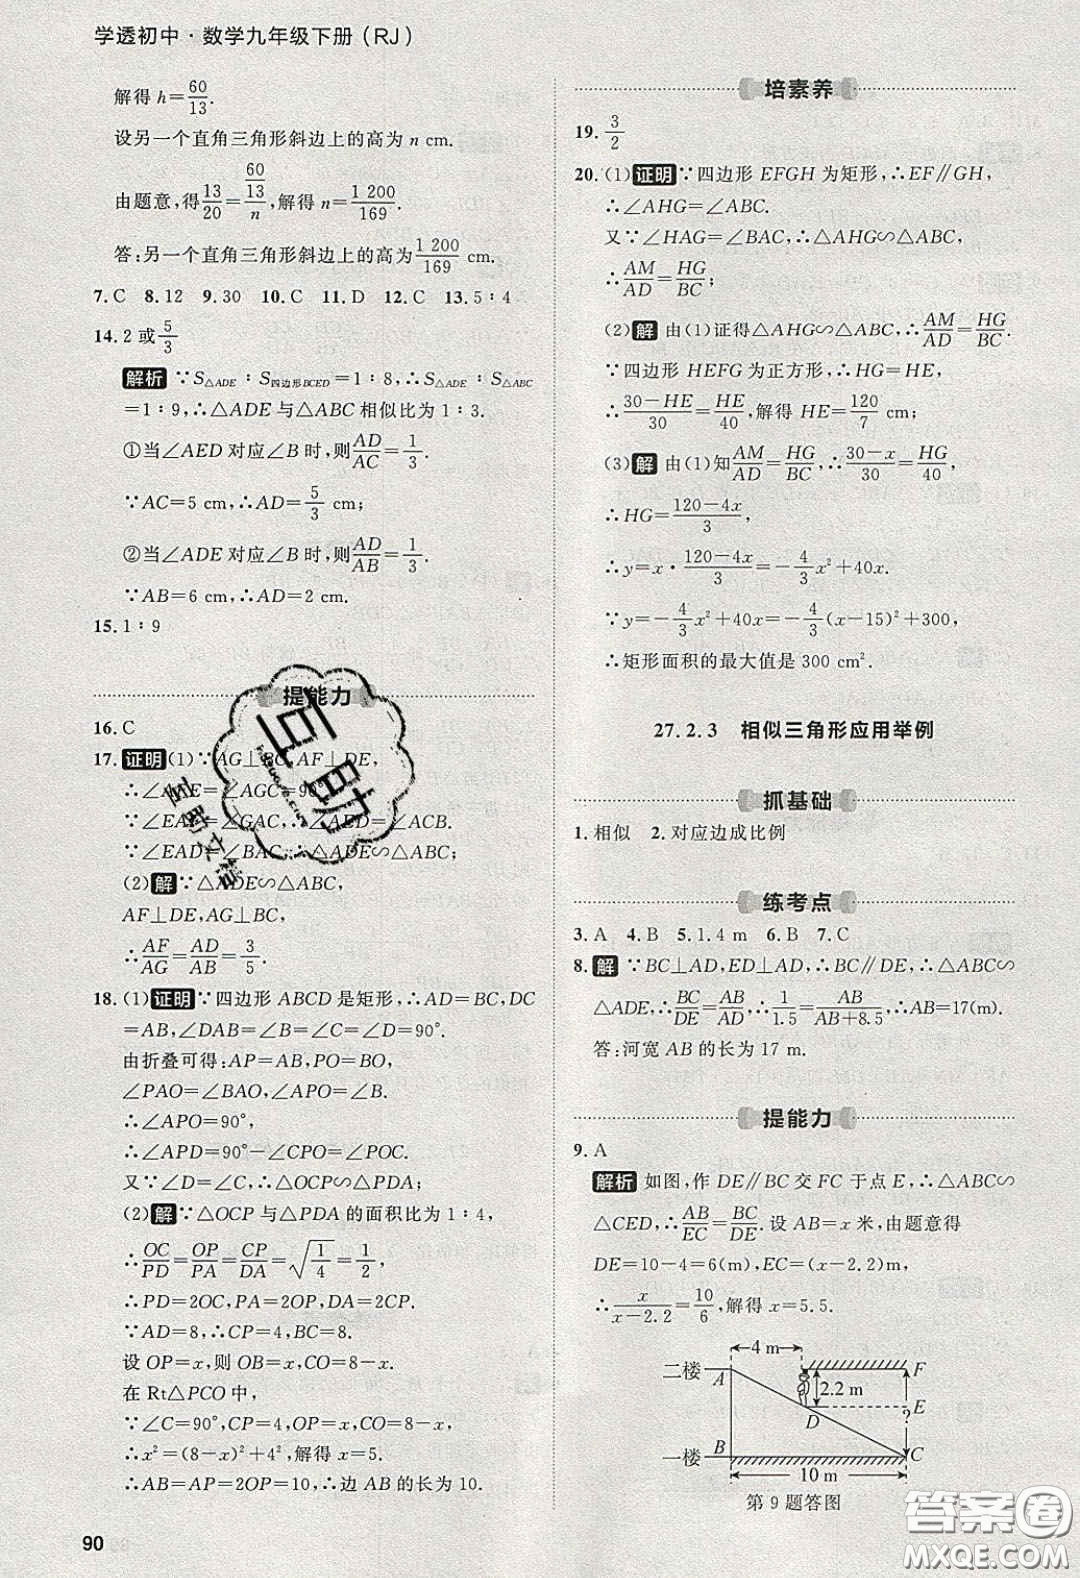 学透初中·数学九年级下册(RJ)
解得h=60/13.
设另一个直角三角形斜边上的高为n cm.
由题意,得13/20=(60/13)/n,解得n=1 200/169.
答:另一个直角三角形斜边上的高为1 200/169 cm.
7.C 8.12 9.30 10.C 11.D 12.C 13.5∶4
14.2或5/3
解析 ∵S△ADE∶S四边形BCED=1∶8,∴S△ADE∶S△ABC
=1∶9,∴△ADE与△ABC相似比为1∶3.
①当∠AED对应∠B时,则AD/AC=1/3.
∵AC=5 cm,∴AD=5/3 cm;
②当∠ADE对应∠B时,则AD/AB=1/3.
∵AB=6 cm,∴AD=2 cm.
15.1∶9
提能力
16.C
17.证明(1)∵AG⊥BC,AF⊥DE,
∴∠AFE=∠AGC=90°
∵∠EAF=∠GAC,∴∠AED=∠ACB.
∵∠EAD=∠BAC,∴△ADE∽△ABC;
(2)解∵△ADE∽△ABC,
AF⊥DE,AG⊥BC,
∴AF/AG=AD/AB=3/5.
18.(1)证明∵四边形ABCD是矩形,∴AD=BC,DC
=AB,∠DAB=∠B=∠C=∠D=90°.
由折叠可得:AP=AB,PO=BO,
∠PAO=∠BAO,∠APO=∠B.
∴∠APO=90°.
∴∠APD=90°-∠CPO=∠POC.
又∵∠D=∠C,∴△OCP∽△PDA;
(2)解∵△OCP与△PDA的面积比为1∶4,
∴OC/PD=OP/PA=CP/DA=√(1/4)=1/2.
∴PD=2OC,PA=2OP,DA=2CP.
∵AD=8,∴CP=4,BC=8.
设OP=x,则OB=x,CO=8-x.
在Rt△PCO中,
∵∠C=90°,CP=4,OP=x,CO=8-x,
∴x²=(8-x)²+4²,解得x=5.
∴AB=AP=2OP=10,∴边AB的长为10.
90
培素养
19.3/2
20.(1)证明∵四边形EFGH为矩形,∴EF∥GH,
∴∠AHG=∠ABC.
又∵∠HAG=∠BAC,∴△AHG∽△ABC,
∴AM/AD=HG/BC;
(2)解 由(1)证得△AHG∽△ABC,∴AM/AD=HG/BC.
∵四边形HEFG为正方形,∴HG=HE,
∴(30-HE)/30=HE/40,解得HE=120/7 cm;
(3)解 由(1)知AM/AD=HG/BC,∴(30-x)/30=HG/40,
∴HG=(120-4x)/3,
∴y=x·(120-4x)/3=-4/3x²+40x.
∵y=-4/3x²+40x=-4/3(x-15)²+300,
∴矩形面积的最大值是300 cm².
27.2.3 相似三角形应用举例
抓基础
1.相似 2.对应边成比例
练考点
3.A 4.B 5.1.4 m 6.B 7.C
8.解 ∵BC⊥AD,ED⊥AD,∴BC∥DE,∴△ABC∽
△ADE,∴BC/DE=AB/AD,∴1/1.5=AB/(AB+8.5),∴AB=17(m).
答:河宽AB的长为17 m.
提能力
9.A
解析 如图,作DE∥BC交FC于点E,∴△ABC∽
△CED,∴AB/EC=BC/DE.设AB=x米,由题意得
DE=10-4=6(m),EC=(x-2.2)m,
∴x/(x-2.2)=10/6,解得x=5.5.
4 m
二楼 A F
2.2 m
D E
?
一楼 B C
10 m
第9题答图
互助
互助文档
答案圈
MXQE.COM